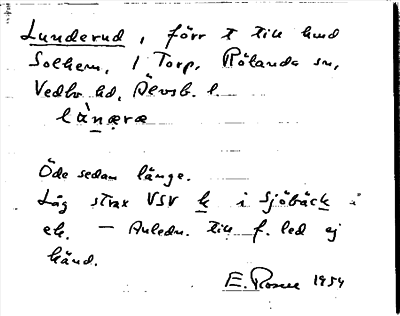 Lunderud, förr t till hmd
Solhem, i Torp, Rölanda sn,
Vedbo hd, Älvsb. l.
Öde sedan länge.
Låg strax VSV k i Sjöbäck i
ek. – Anledn. till f. led ej
känd.
E. Rosen 1954